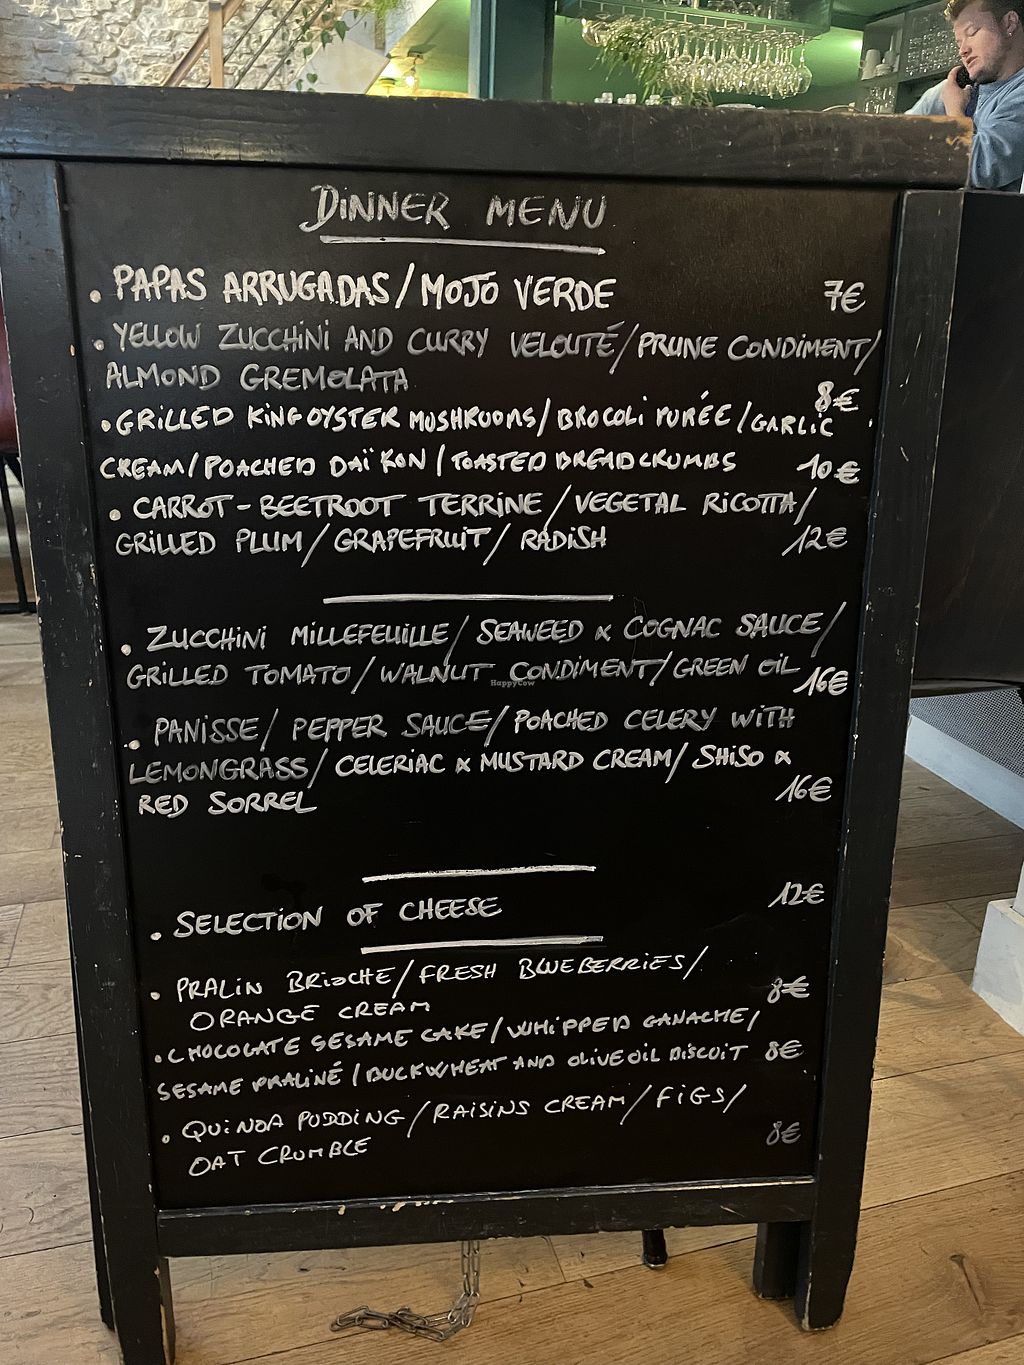 DINNER MENU
. PAPAS ARRUGADAS / MOJO VERDE 7€
. YELLOW ZUCCHINI AND CURRY VELOUTÉ / PRUNE CONDIMENT /
ALMOND GREMOLATA 8€
. GRILLED KING OYSTER MUSHROOMS / BROCOLI PURÉE / GARLIC
CREAM / POACHED DAÏKON / TOASTED BREADCRUMBS 10€
. CARROT - BEETROOT TERRINE / VEGETAL RICOTTA /
GRILLED PLUM / GRAPEFRUIT / RADISH 12€
. ZUCCHINI MILLEFEUILLE / SEAWEED & COGNAC SAUCE /
GRILLED TOMATO / WALNUT CONDIMENT / GREEN OIL 16€
HappyCow
. PANISSE / PEPPER SAUCE / POACHED CELERY WITH
LEMONGRASS / CELERIAC & MUSTARD CREAM / SHISO &
RED SORREL 16€
. SELECTION OF CHEESE 12€
. PRALIN BRIOCHE / FRESH BLUEBERRIES /
ORANGE CREAM 8€
. CHOCOLATE SESAME CAKE / WHIPPED GANACHE /
SESAME PRALINÉ / BUCKWHEAT AND OLIVE OIL BISCUIT 8€
. QUINOA PUDDING / RAISINS CREAM / FIGS /
OAT CRUMBLE 8€